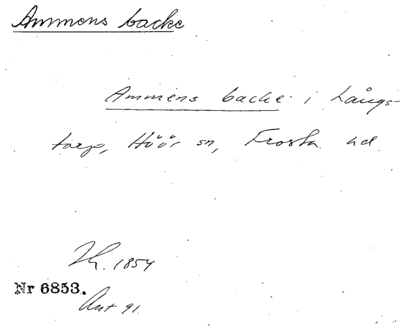 Ammens backe
Ammens backe i Långs-
torp, Höör sn, Frosta hd.
Th. 1854
Nr 6853.
Ant 91.